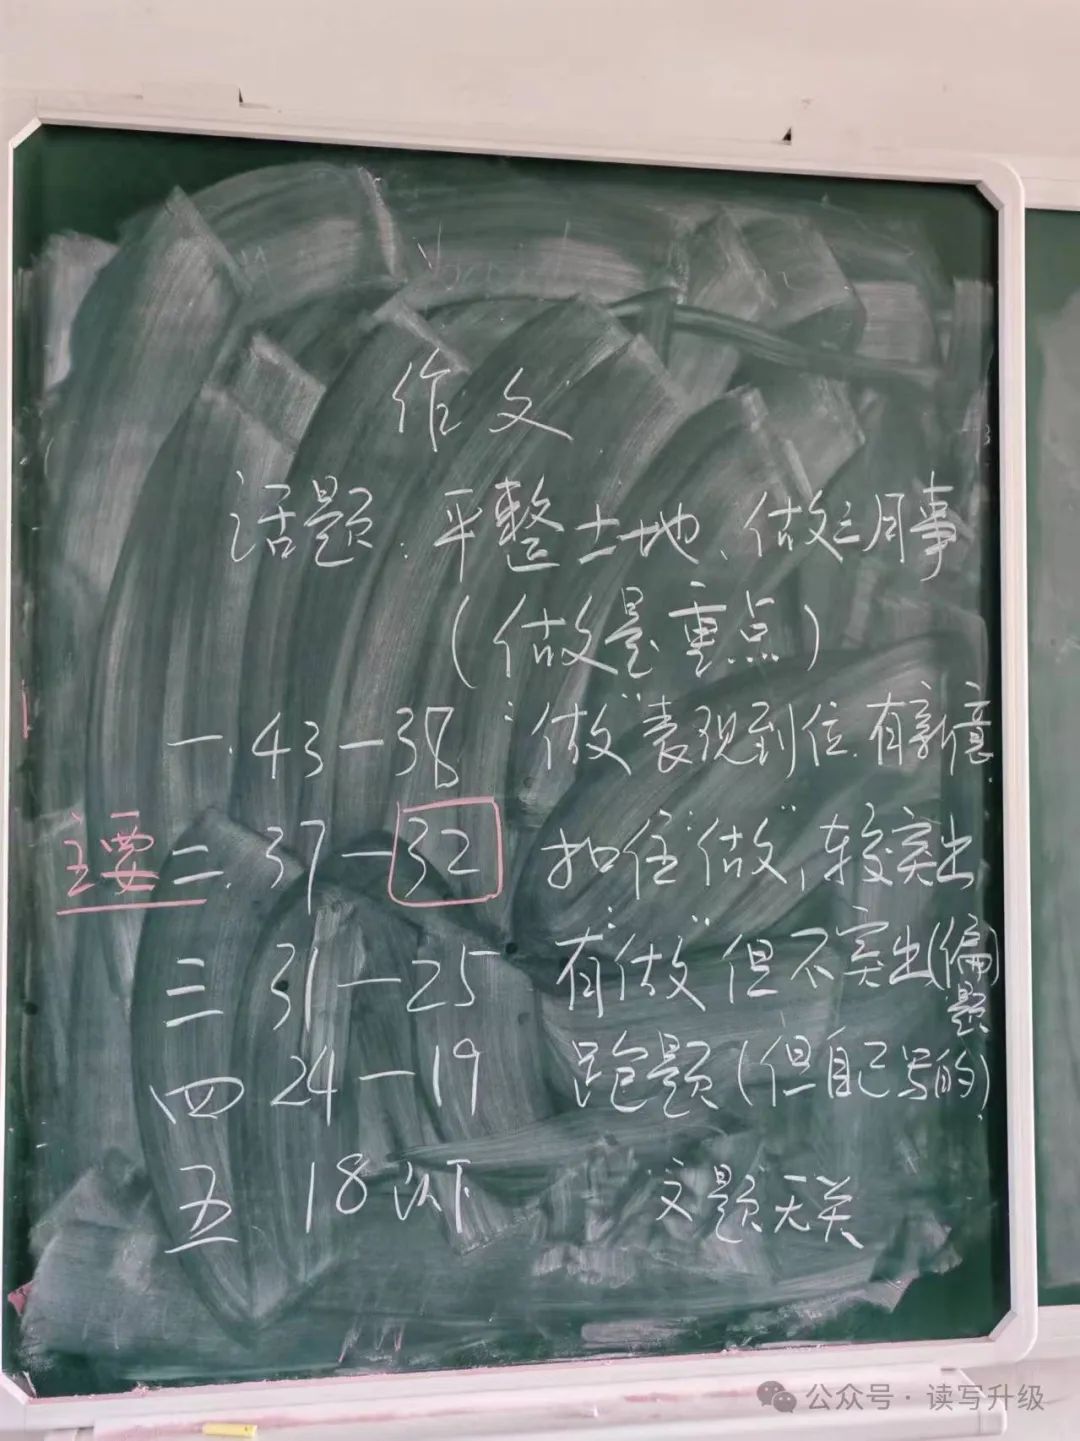 作文
话题:平整土地、做三月事
(做是重点)
一.43—38 “做”表现到位.有新意.
主要 二.37—32 扣住“做”,较突出
三 31—25 有“做”但不突出(偏题)
四 24—19 跑题(但自己写的)
五 18以下 文题无关
公众号·读写升级